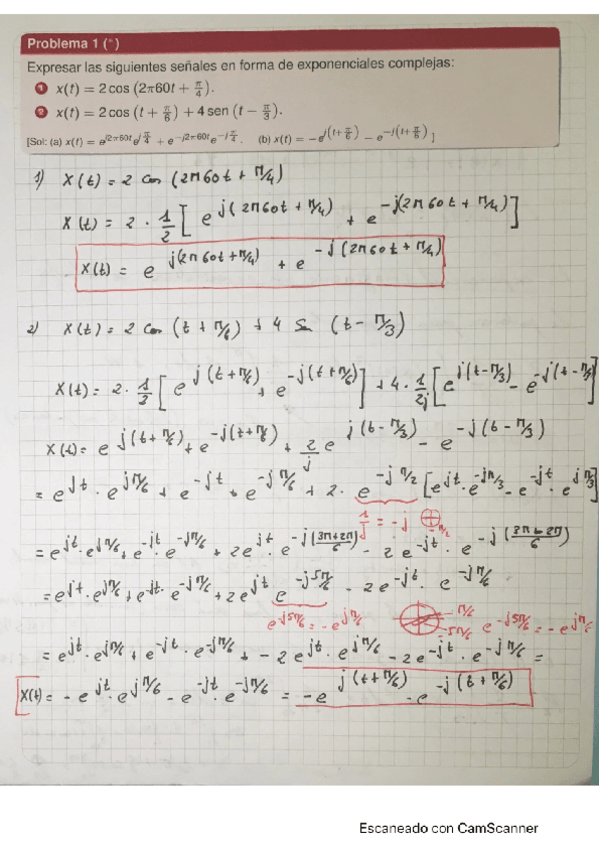 Problema 1 (*)
Expresar las siguientes señales en forma de exponenciales complejas:
1 x(t) = 2 cos (2π60t + π/4).
2 x(t) = 2 cos (t + π/6) + 4 sen (t − π/3).
[Sol: (a) x(t) = e^{j2π60t}e^{jπ/4} + e^{−j2π60t}e^{−jπ/4}. (b) x(t) = −e^{j(t+π/6)} − e^{−j(t+π/6)} ]
1) X(t) = 2 cos (2π60t + π/4)
X(t) = 2 · 1/2 [ e^{j(2π60t + π/4)} + e^{−j(2π60t + π/4)} ]
X(t) = e^{j(2π60t + π/4)} + e^{−j(2π60t + π/4)}
2) X(t) = 2 cos (t + π/6) + 4 sen (t − π/3)
X(t) = 2 · 1/2 [ e^{j(t + π/6)} + e^{−j(t + π/6)} ] + 4 · 1/2j [ e^{j(t − π/3)} − e^{−j(t − π/3)} ]
X(t) = e^{j(t + π/6)} + e^{−j(t + π/6)} + 2/j e^{j(t − π/3)} − e^{−j(t − π/3)}
= e^{jt} · e^{jπ/6} + e^{−jt} · e^{−jπ/6} + 2 · e^{−jπ/2} [ e^{jt} · e^{−jπ/3} − e^{−jt} · e^{jπ/3} ]
1/j = −j
= e^{jt} · e^{jπ/6} + e^{−jt} · e^{−jπ/6} + 2e^{jt} · e^{−j(3π+2π)/6} − 2e^{−jt} · e^{−j(3π−2π)/6}
= e^{jt} · e^{jπ/6} + e^{−jt} · e^{−jπ/6} + 2e^{jt} e^{−j5π/6} − 2e^{−jt} · e^{−jπ/6}
e^{−j5π/6} = −e^{jπ/6} −π/6 −5π/6 e^{−j5π/6} = −e^{jπ/6}
= e^{jt} · e^{jπ/6} + e^{−jt} · e^{−jπ/6} + −2e^{jt} · e^{jπ/6} − 2e^{−jt} · e^{−jπ/6} =
X(t) = −e^{jt} · e^{jπ/6} − e^{−jt} · e^{−jπ/6} = −e^{j(t + π/6)} − e^{−j(t + π/6)}
Escaneado con CamScanner